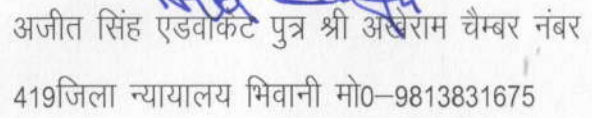 अजीत सिंह एडवोकेट पुत्र श्री अखेराम चैम्बर नंबर
419जिला न्यायालय भिवानी मो0–9813831675